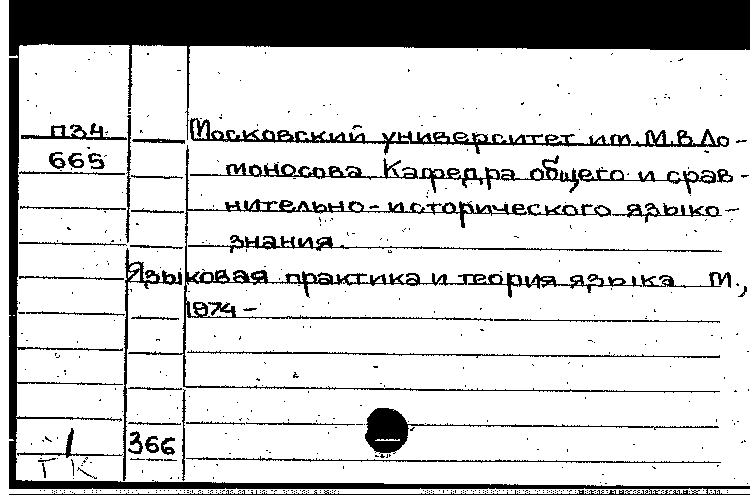 П34
665
Московский университет им. М.В.Ло-
моносова. Кафедра общего и срав-
нительно-исторического языко-
знания.
Языковая практика и теория языка. М.,
1974-
1
ГК
366